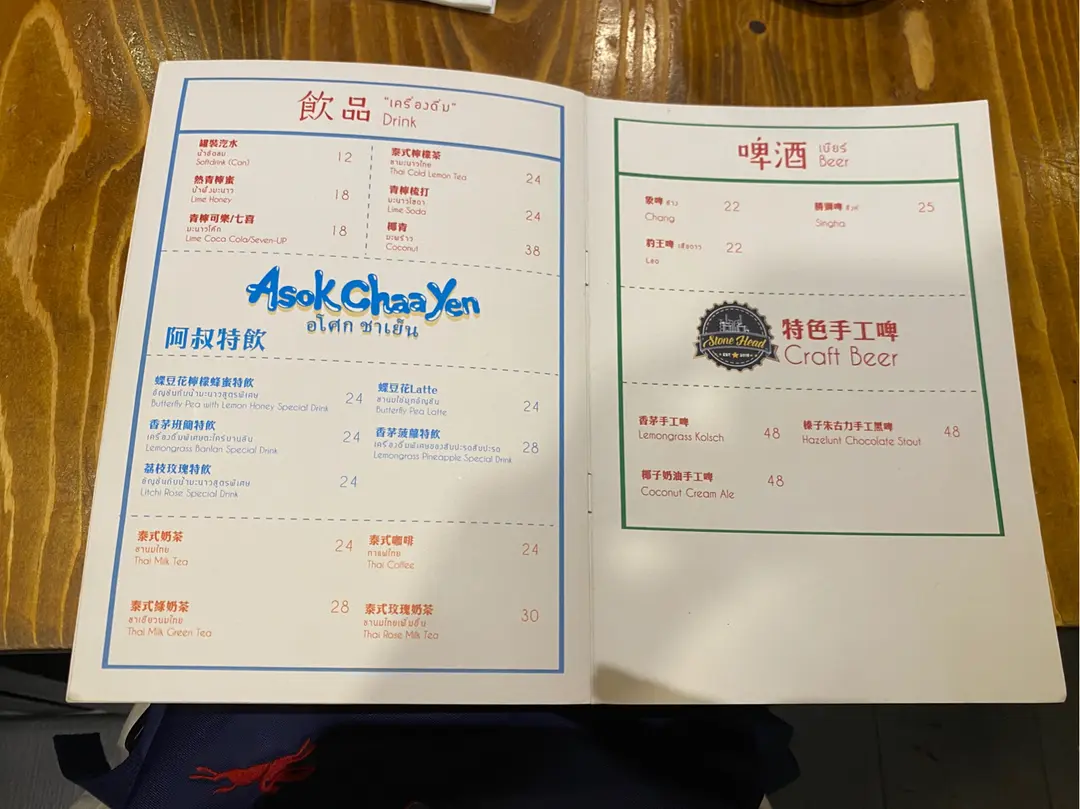 飲品 "เครื่องดื่ม"
Drink
罐裝汽水
น้ำอัดลม
Softdrink (Can) 12
熱青檸蜜
น้ำผึ้งมะนาว
Lime Honey 18
青檸可樂/七喜
มะนาวโค้ก
Lime Coca Cola/Seven-UP 18
泰式檸檬茶
ชามะนาวไทย
Thai Cold Lemon Tea 24
青檸梳打
มะนาวโซดา
Lime Soda 24
椰青
มะพร้าว
Coconut 38
Asok Chaa Yen
อโศก ชาเย็น
阿叔特飲
蝶豆花檸檬蜂蜜特飲
อัญชันกับน้ำมะนาวสูตรพิเศษ
Butterfly Pea with Lemon Honey Special Drink 24
香茅班蘭特飲
เครื่องดื่มพิเศษตะไคร้บานลัน
Lemongrass Banlan Special Drink 24
荔枝玫瑰特飲
อัญชันกับน้ำมะนาวสูตรพิเศษ
Litchi Rose Special Drink 24
蝶豆花Latte
ชานมไข่มุกอัญชัน
Butterfly Pea Latte 24
香茅菠蘿特飲
เครื่องดื่มพิเศษของสับปะรดสับปะรด
Lemongrass Pineapple Special Drink 28
泰式奶茶
ชานมไทย
Thai Milk Tea 24
泰式咖啡
กาแฟไทย
Thai Coffee 24
泰式綠奶茶
ชาเขียวนมไทย
Thai Milk Green Tea 28
泰式玫瑰奶茶
ชานมไทยเพิ่มขึ้น
Thai Rose Milk Tea 30
啤酒 เบียร์
Beer
象啤 ช้าง
Chang 22
豹王啤 เสือดาว
Leo 22
獅啤 สิงห์
Singha 25
Stone Head
EST 2015
特色手工啤
Craft Beer
香茅手工啤
Lemongrass Kolsch 48
椰子奶油手工啤
Coconut Cream Ale 48
榛子朱古力手工黑啤
Hazelunt Chocolate Stout 48